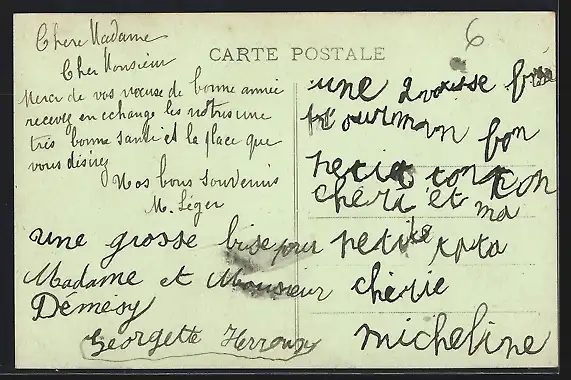 Chere Madame
Cher Monsieur
Merci de vos vœuse de bonne année
recevez en echange les notres une
très bonne santé et la place que
vous désirez
Nos bons souvenirs
M. Léger
une grosse bise pour
Madame et Monsieur
Démésy
Georgette Herroux
CARTE POSTALE
6
une grousse
pour man bon
petit ton ton
chéri et ma
petite tata
chérie
micheline